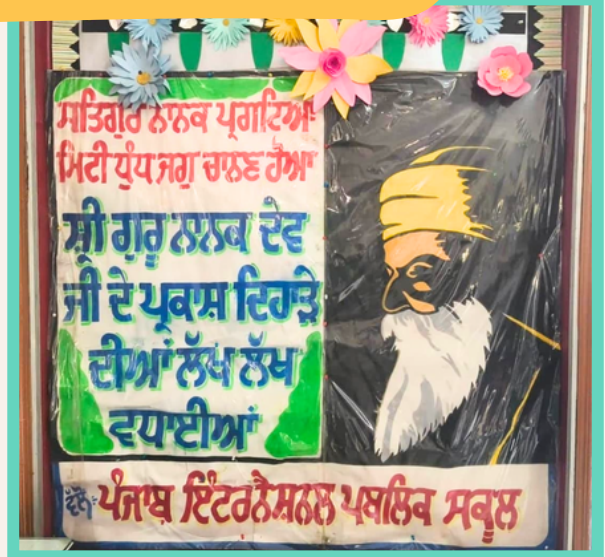 ਸਤਿਗੁਰ ਨਾਨਕ ਪ੍ਰਗਟਿਆ
ਮਿਟੀ ਧੁੰਧ ਜਗੁ ਚਾਨਣ ਹੋਆ
ਸ਼੍ਰੀ ਗੁਰੂ ਨਾਨਕ ਦੇਵ
ਜੀ ਦੇ ਪ੍ਰਕਾਸ਼ ਦਿਹਾੜੇ
ਦੀਆਂ ਲੱਖ ਲੱਖ
ਵਧਾਈਆਂ
ਵੱਲੋਂ: ਪੰਜਾਬ ਇੰਟਰਨੈਸ਼ਨਲ ਪਬਲਿਕ ਸਕੂਲ